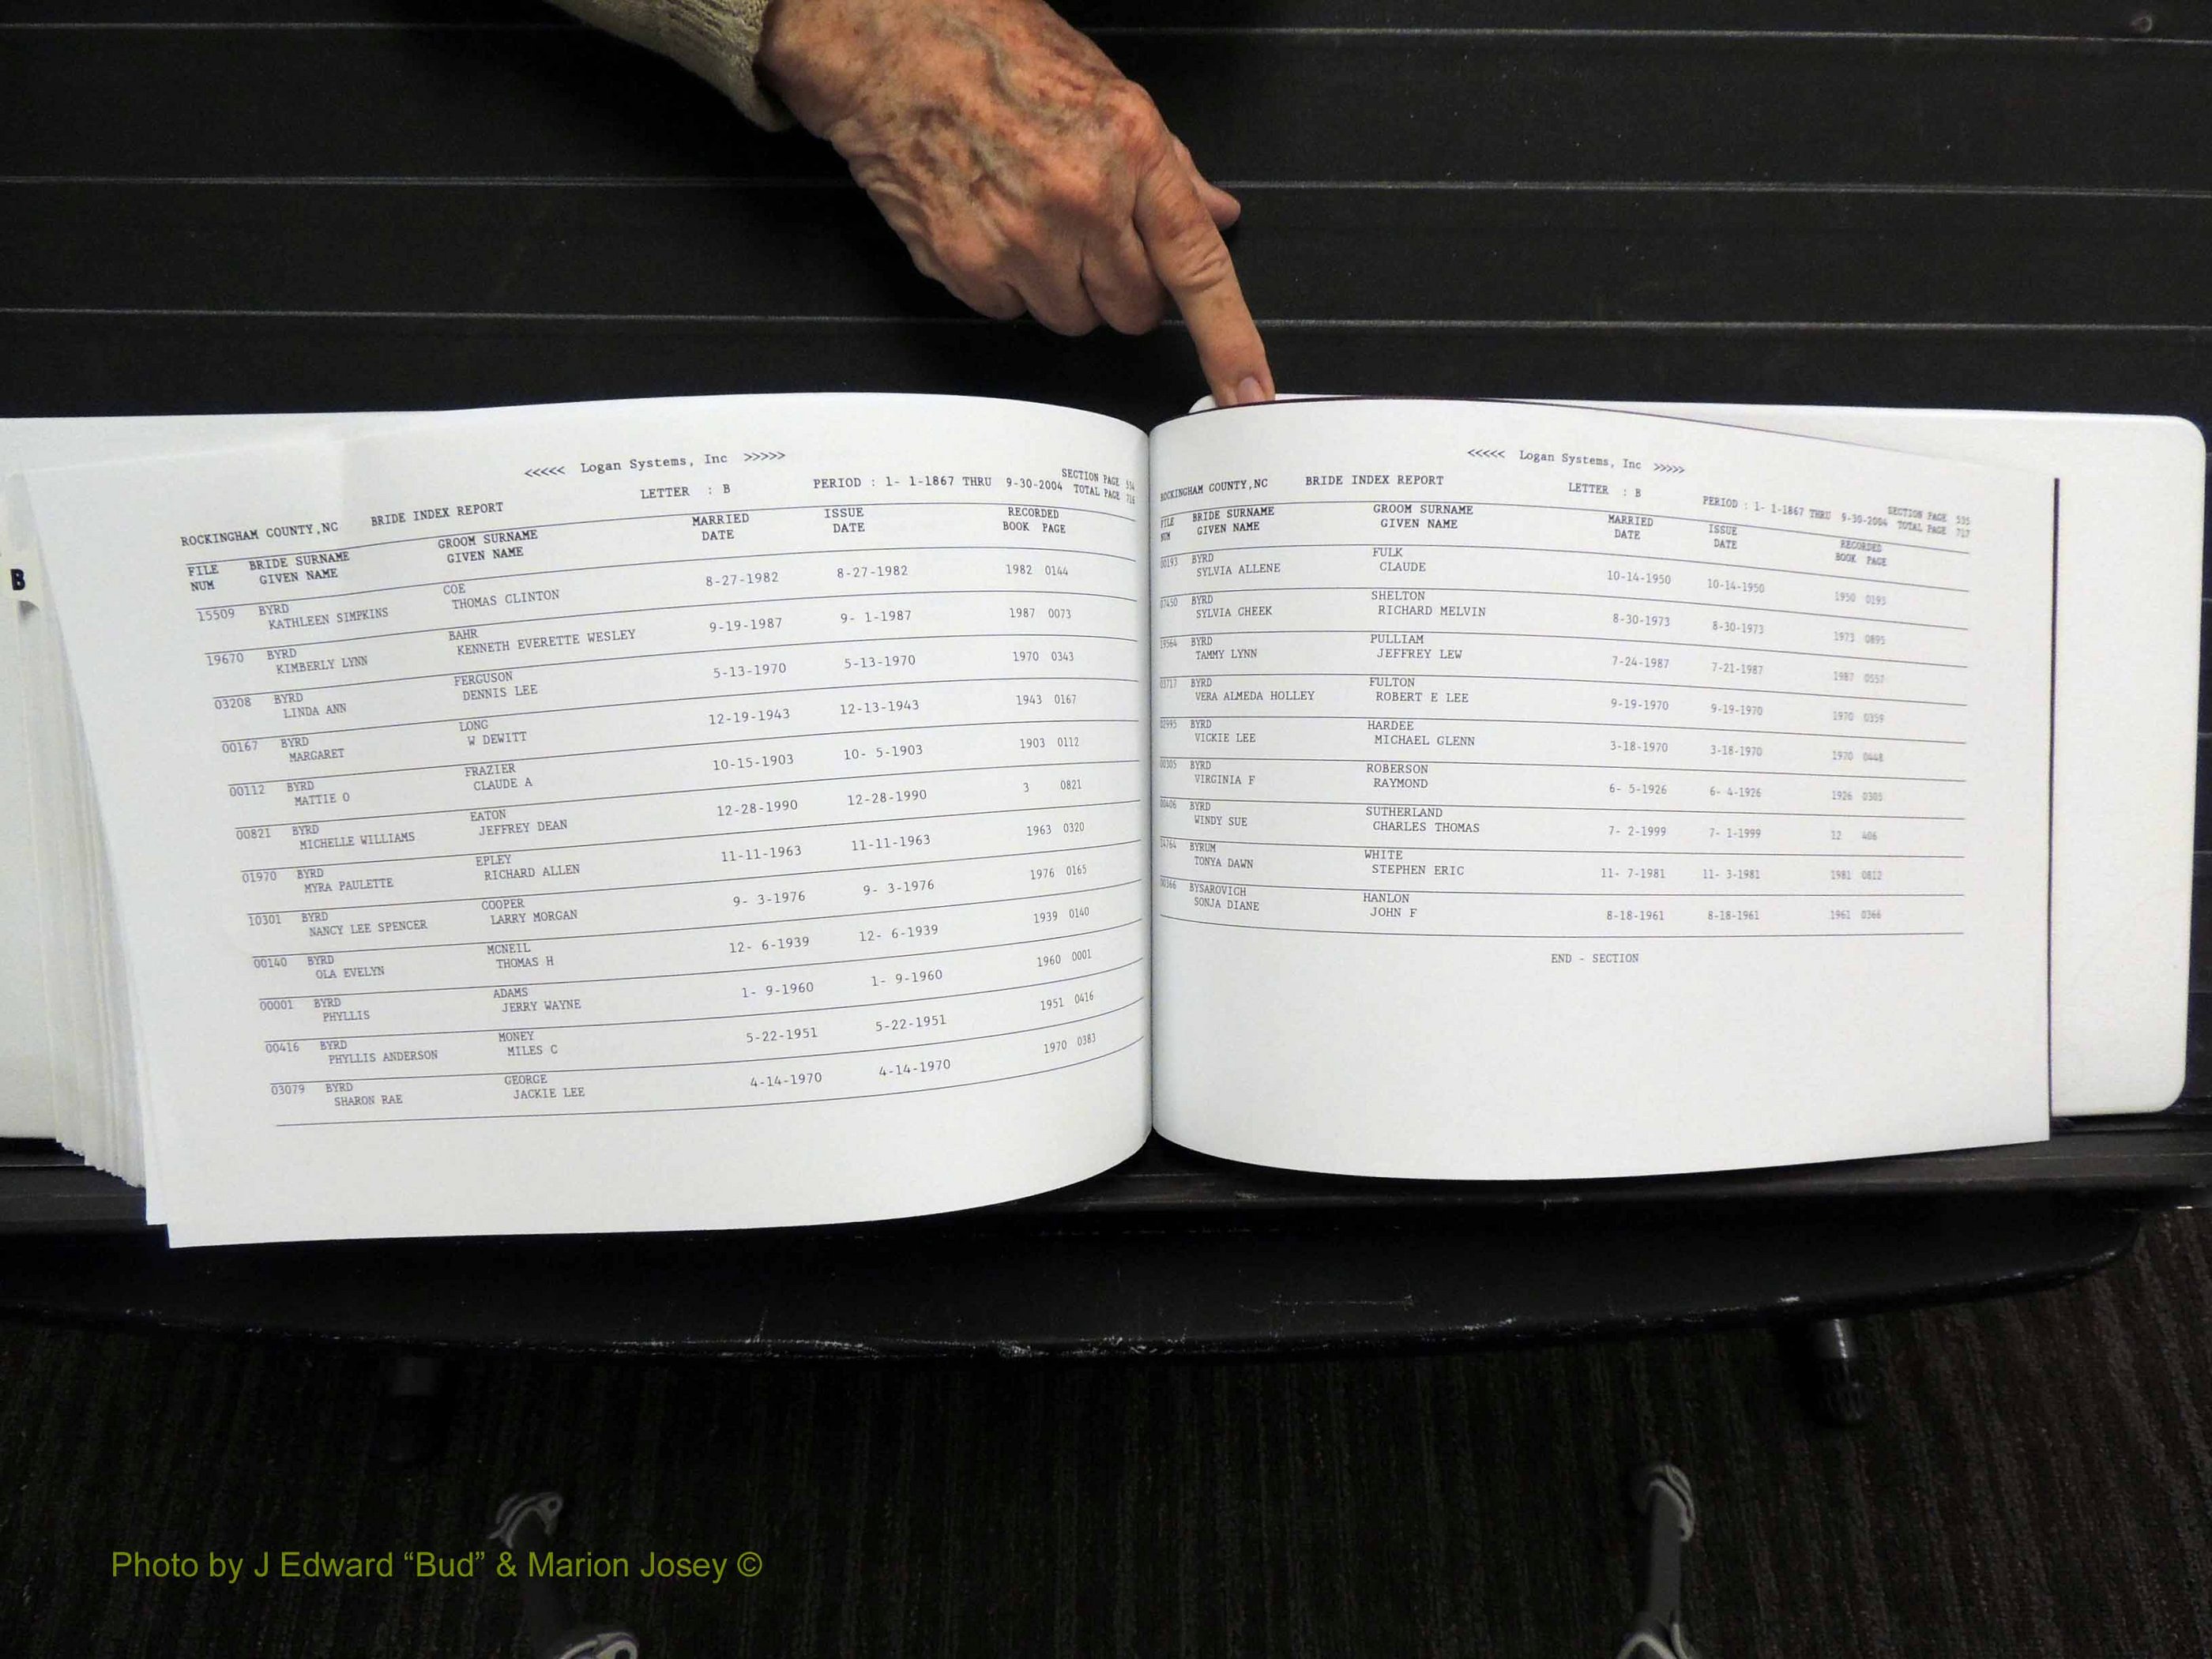 B
<<<<< Logan Systems, Inc >>>>>
ROCKINGHAM COUNTY,NC BRIDE INDEX REPORT LETTER : B PERIOD : 1- 1-1867 THRU 9-30-2004 SECTION PAGE 534
TOTAL PAGE 716
FILE BRIDE SURNAME GROOM SURNAME MARRIED ISSUE RECORDED
NUM GIVEN NAME GIVEN NAME DATE DATE BOOK PAGE
15509 BYRD COE 8-27-1982 8-27-1982 1982 0144
KATHLEEN SIMPKINS THOMAS CLINTON
19670 BYRD BAHR 9-19-1987 9- 1-1987 1987 0073
KIMBERLY LYNN KENNETH EVERETTE WESLEY
03208 BYRD FERGUSON 5-13-1970 5-13-1970 1970 0343
LINDA ANN DENNIS LEE
00167 BYRD LONG 12-19-1943 12-13-1943 1943 0167
MARGARET W DEWITT
00112 BYRD FRAZIER 10-15-1903 10- 5-1903 1903 0112
MATTIE O CLAUDE A
00821 BYRD EATON 12-28-1990 12-28-1990 3 0821
MICHELLE WILLIAMS JEFFREY DEAN
01970 BYRD EPLEY 11-11-1963 11-11-1963 1963 0320
MYRA PAULETTE RICHARD ALLEN
10301 BYRD COOPER 9- 3-1976 9- 3-1976 1976 0165
NANCY LEE SPENCER LARRY MORGAN
00140 BYRD MCNEIL 12- 6-1939 12- 6-1939 1939 0140
OLA EVELYN THOMAS H
00001 BYRD ADAMS 1- 9-1960 1- 9-1960 1960 0001
PHYLLIS JERRY WAYNE
00416 BYRD MONEY 5-22-1951 5-22-1951 1951 0416
PHYLLIS ANDERSON MILES C
03079 BYRD GEORGE 4-14-1970 4-14-1970 1970 0383
SHARON RAE JACKIE LEE
<<<<< Logan Systems, Inc >>>>>
ROCKINGHAM COUNTY,NC BRIDE INDEX REPORT LETTER : B PERIOD : 1- 1-1867 THRU 9-30-2004 SECTION PAGE 535
TOTAL PAGE 717
FILE BRIDE SURNAME GROOM SURNAME MARRIED ISSUE RECORDED
NUM GIVEN NAME GIVEN NAME DATE DATE BOOK PAGE
00193 BYRD FULK 10-14-1950 10-14-1950 1950 0195
SYLVIA ALLENE CLAUDE
07450 BYRD SHELTON 8-30-1973 8-30-1973 1973 0895
SYLVIA CHEEK RICHARD MELVIN
19564 BYRD PULLIAM 7-24-1987 7-21-1987 1987 0557
TAMMY LYNN JEFFREY LEW
03717 BYRD FULTON 9-19-1970 9-19-1970 1970 0359
VERA ALMEDA HOLLEY ROBERT E LEE
02995 BYRD HARDEE 3-18-1970 3-18-1970 1970 0448
VICKIE LEE MICHAEL GLENN
00305 BYRD ROBERSON 6- 5-1926 6- 4-1926 1926 0305
VIRGINIA F RAYMOND
00406 BYRD SUTHERLAND 7- 2-1999 7- 1-1999 12 406
WINDY SUE CHARLES THOMAS
14764 BYRUM WHITE 11- 7-1981 11- 3-1981 1981 0812
TONYA DAWN STEPHEN ERIC
00366 BYSAROVICH HANLON 8-18-1961 8-18-1961 1961 0366
SONJA DIANE JOHN F
END - SECTION
Photo by J Edward “Bud” & Marion Josey ©